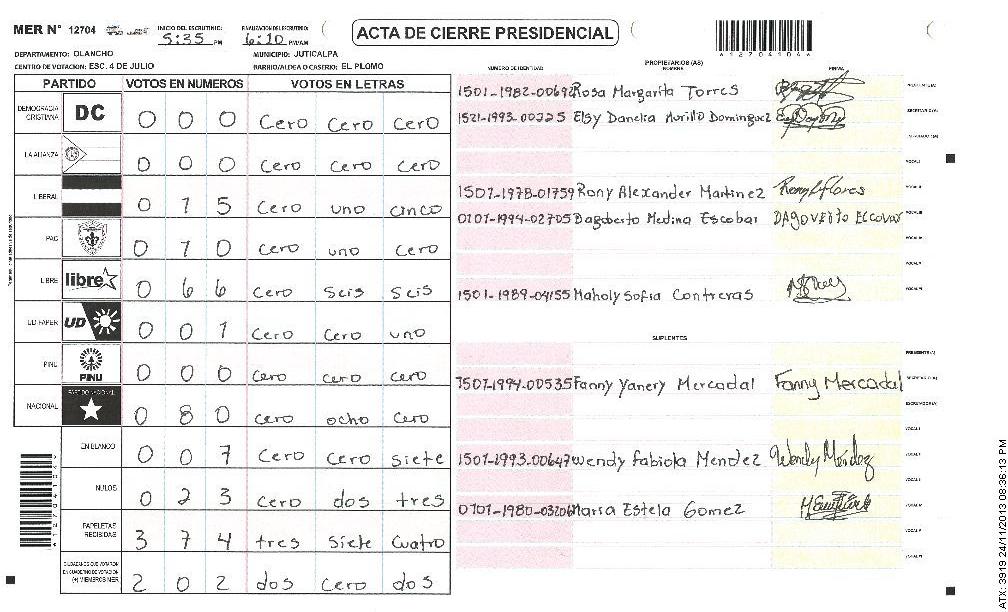 MER N° 12704
INICIO DEL ESCRUTINIO: 5:35 PM
FINALIZACION DEL ESCRUTINIO: 6:10 PM/AM
ACTA DE CIERRE PRESIDENCIAL
*12704104*
DEPARTAMENTO: OLANCHO
MUNICIPIO: JUTICALPA
CENTRO DE VOTACION: ESC. 4 DE JULIO
BARRIO/ALDEA O CASERIO: EL PLOMO
PARTIDO VOTOS EN NUMEROS VOTOS EN LETRAS
DEMOCRACIA CRISTIANA DC 0 0 0 Cero Cero Cero
LA ALIANZA 0 0 0 Cero Cero Cero
LIBERAL 0 1 5 Cero uno cinco
PAC 0 1 0 Cero uno Cero
LIBRE libre 0 6 6 Cero Seis Seis
UD-FAPER UD 0 0 1 Cero Cero uno
PINU PINU 0 0 0 Cero Cero Cero
NACIONAL PARTIDO NACIONAL 0 8 0 Cero ocho Cero
EN BLANCO 0 0 7 Cero Cero siete
NULOS 0 2 3 Cero dos tres
PAPELETAS RECIBIDAS 3 7 4 tres siete cuatro
CIUDADANOS QUE VOTARON EN CUADERNO DE VOTACION (+) MIEMBROS MER 2 0 2 dos Cero dos
PROPIETARIOS (AS)
NUMERO DE IDENTIDAD NOMBRE FIRMA
1501-1982-00692 Rosa Margarita Torres
1521-1993-00225 Elsy Danelia Murillo Dominguez
1501-1978-01759 Rony Alexander Martinez
0101-1994-02705 Dagoberto Medina Escobar
1501-1989-04155 Maholy Sofia Contreras
SUPLENTES
1501-1994-00535 Fanny Yanery Mercadal Fanny Mercadal
1501-1993-00647 Wendy Fabiola Mendez Wendy Méndez
0101-1980-03206 Maria Estela Gomez
ATX: 3919 24/11/2013 08:36:13 PM